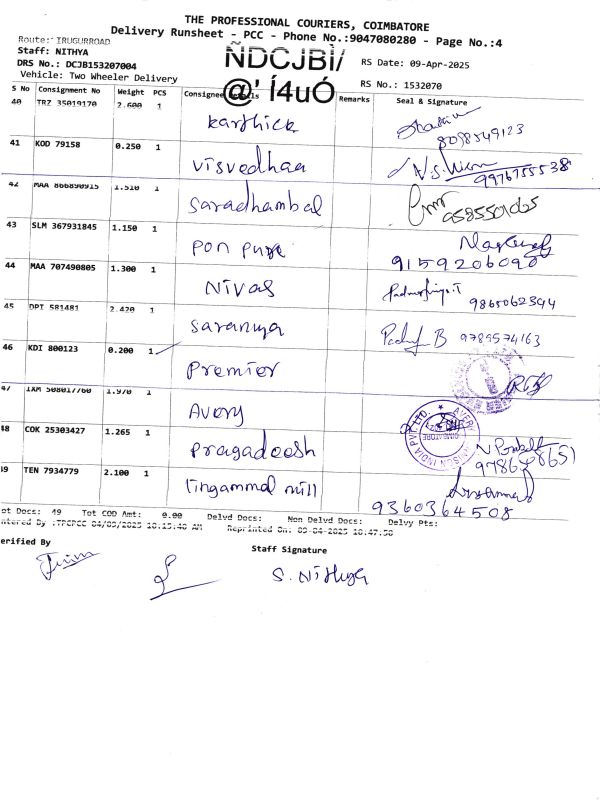 THE PROFESSIONAL COURIERS, COIMBATORE
Delivery Runsheet - PCC - Phone No.:9047080280 - Page No.:4
Route: IRUGURROAD
Staff: NITHYA
DRS No.: DCJB153207004
Vehicle: Two Wheeler Delivery
ÑDCJBÌ/
@' Í4uÓ
RS Date: 09-Apr-2025
RS No.: 1532070
S No Consignment No Weight PCS Consignee Details Remarks Seal & Signature
40 TRZ 35019170 2.600 1 karthick 8098549123
41 KOD 79158 0.250 1 visvedhaa 9976755538
42 MAA 866890915 1.510 1 saradhambal
43 SLM 367931845 1.150 1 pon pure 9159206090
44 MAA 707490805 1.300 1 Nivas 9865062344
45 DPI 581481 2.420 1 saranya 9789574163
46 KDI 800123 0.200 1 premier
47 IXM 508017760 1.970 1 Avery
48 COK 25303427 1.265 1 pragadeesh
49 TEN 7934779 2.100 1 lingammal mill 9360364508
Tot Docs: 49 Tot COD Amt: 0.00 Delvd Docs: Non Delvd Docs: Delvy Pts:
Entered By :TPCPCC 04/09/2025 10:15:40 AM Reprinted On: 09-04-2025 10:47:58
erified By
Staff Signature
S. Nithya